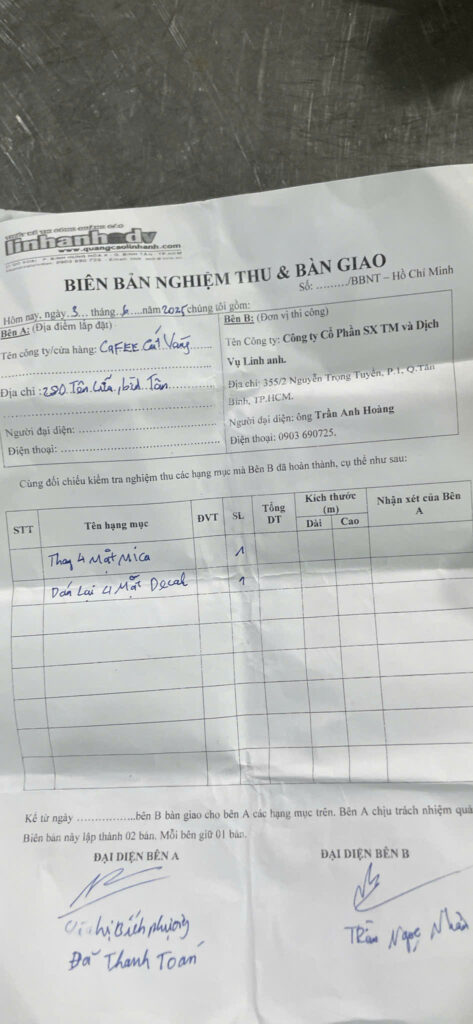 linhanhadv
www.quangcaolinhanh.com
BIÊN BẢN NGHIỆM THU & BÀN GIAO
Số: ........./BBNT – Hồ Chí Minh
Hôm nay, ngày 3 tháng 6 năm 2025 chúng tôi gồm:
Bên A: (Địa điểm lắp đặt)
Tên công ty/cửa hàng: CAFEE Cát Vàng
Địa chỉ : 280 Tên Lửa, Bình Tân
Người đại diện:
Điện thoại:
Bên B: (Đơn vị thi công)
Tên Công ty: Công ty Cổ Phần SX TM và Dịch
Vụ Linh anh.
Địa chỉ: 355/2 Nguyễn Trọng Tuyển, P.1, Q.Tân
Bình, TP.HCM.
Người đại diện: ông Trần Anh Hoàng
Điện thoại: 0903 690725.
Cùng đối chiếu kiểm tra nghiệm thu các hạng mục mà Bên B đã hoàn thành, cụ thể như sau:
STT Tên hạng mục ĐVT SL Tổng DT Kích thước (m) Dài Cao Nhận xét của Bên A
Thay 4 Mặt Mica 1
Dán Lại 4 Mặt Decal 1
Kể từ ngày ..................bên B bàn giao cho bên A các hạng mục trên. Bên A chịu trách nhiệm quả
Biên bản này lập thành 02 bản. Mỗi bên giữ 01 bản.
ĐẠI DIỆN BÊN A
ĐẠI DIỆN BÊN B
Bích Phượng
Đã Thanh Toán
Trần Ngọc